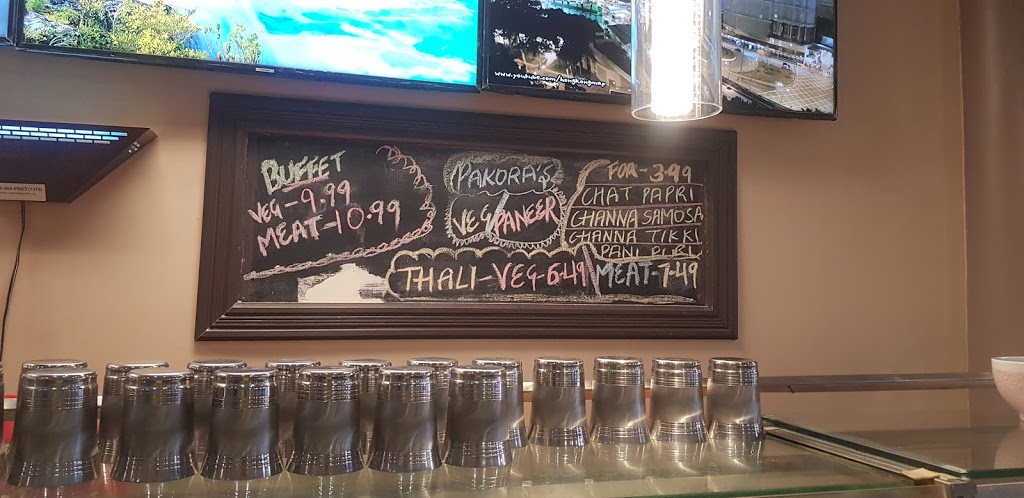 www.youtube.com/hongkongmap
BUFFET
VEG-9.99
MEAT-10.99
PAKORA'S
VEG/PANEER
FOR-3.99
CHAT PAPRI
CHANNA SAMOSA
CHANNA TIKKI
PANI PURI
THALI-VEG-6.49\MEAT-7.49